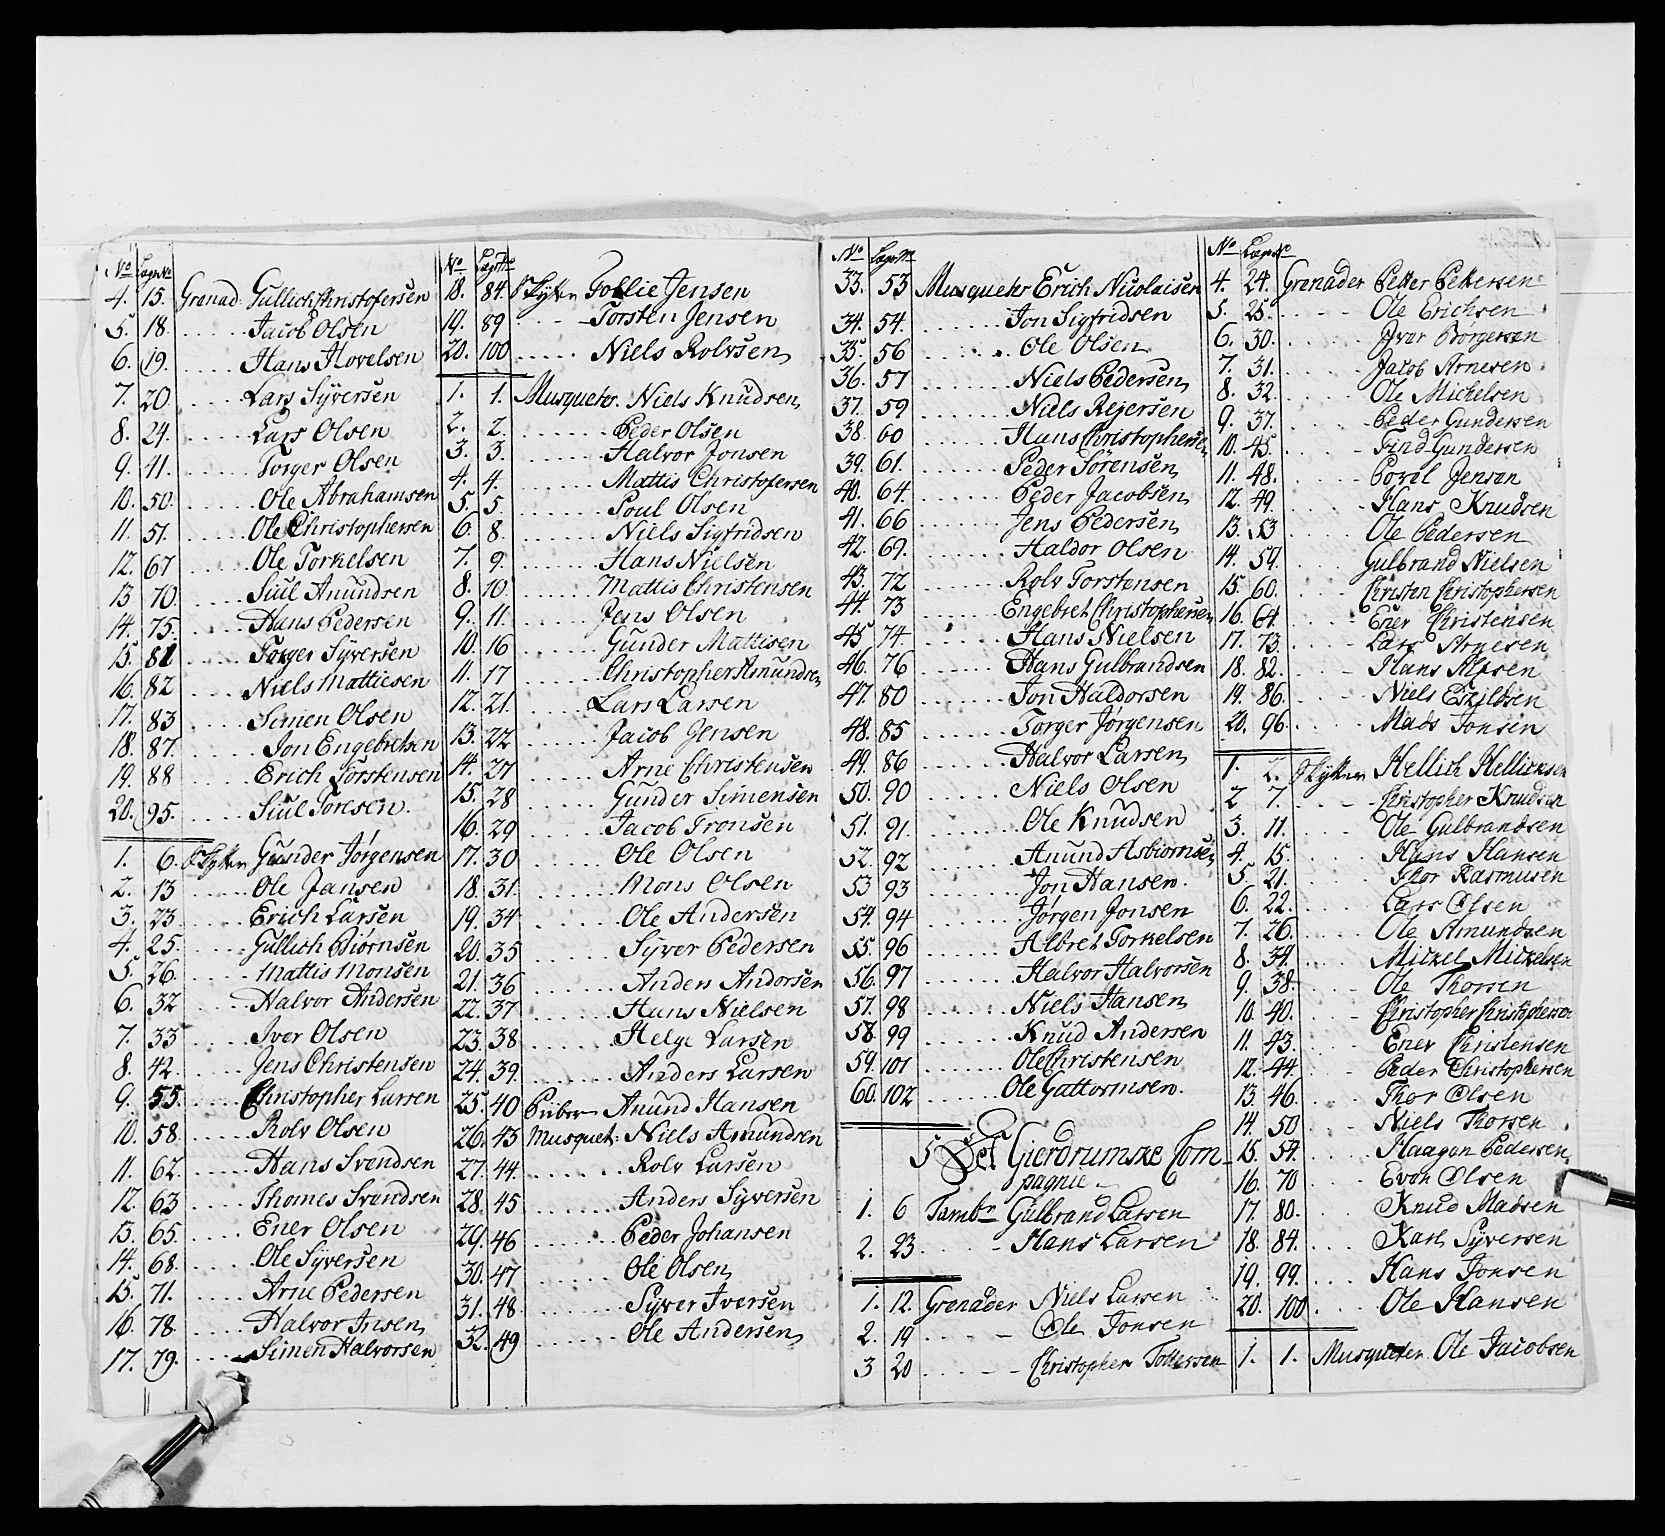 No Lægs No
4. 15. Grenad Gullich Christofersen
5. 18. Jacob Olsen
6. 19. Hans Hovelsen
7. 20. Lars Syversen
8. 24. Lars Olsen
9. 41. Torger Olsen
10. 50. Ole Abrahamsen
11. 51. Ole Christophersen
12. 67 Ole Torkelsen
13 70. Siul Anundsen
14. 75. Hans Pedersen
15. 81 Torger Syversen
16. 82 Niels Mattiesen
17. 83 Simen Olsen
18. 87. Jon Engebretsen
19. 88 Erich Torstensen
20. 95. Siul Toresen.
1. 6. Skytter Gunder Jørgensen
2. 13 Ole Jansen
3. 23 Erich Larsen
4. 25. Gullich Biørnsen
5. 26. Mattis Monsen
6. 32 Halvor Andersen
7. 33 Iver Olsen
8. 42. Jens Christensen
9. 55. Christopher Larsen
10. 58. Rolv Olsen
11. 62. Hans Svendsen
12. 63 Thomes Svendsen
13. 65. Ener Olsen
14. 68. Ole Syversen
15. 71. Arne Pedersen
16. 78. Halvor Insen
17. 79. Simen Halvorsen
No Lægs No
18. 84. Skytter Tollie Jensen
19. 89 Torsten Jensen
20. 100 Niels Rolvsen
1. 1. Musqueter. Niels Knudsen
2. 2. Peder Olsen
3. 3. Halvor Jonsen
4. 4. Mattis Christofersen
5. 5. Poul Olsen
6. 8. Niels Sigfridsen
7. 9. Hans Nielsen
8. 10. Mattis Christensen
9. 11. Jens Olsen
10. 16 Gunder Mattisen
11. 17 Christopher Amundsen
12. 21. Lars Larsen
13. 22 Jacob Jensen
14. 27 Arne Christensen
15. 28 Gunder Simensen
16. 29 Jacob Tronsen
17. 30 Ole Olsen
18. 31. Mons Olsen
19. 34 Ole Andersen
20. 35 Syver Pedersen
21. 36 Anders Andorsen
22. 37 Hans Nielsen
23. 38 Helge Larsen
24. 39. Anders Larsen
25. 40 Piiber Anund Hansen
26. 43 Musquet: Niels Amundsen
27. 44. Rolv Larsen
28. 45 Anders Syversen
29. 46 Peder Johansen
30. 47 Ole Olsen
31. 48 Syver Iversen
32. 49 Ole Andersen
No Lægs No
33. 53 Musqueter Erich Nicolaisen
34. 54. Jon Sigfridsen
35. 56 Ole Olsen
36. 57 Niels Pedersen
37. 59 Niels Rejersen
38. 60 Hans Christophersen
39. 61. Peder Sørensen
40. 64. Peder Jacobsen
41. 66 Jens Pedersen
42. 69. Haldor Olsen
43. 72 Rolv Torstensen
44. 73 Engebret Christophersen
45 74 Hans Nielsen
46. 76 Hans Gulbrandsen
47. 80 Jon Haldorsen
48. 85 Torger Jørgensen
49. 86 Halvor Larsen
50. 90 Niels Olsen
51. 91. Ole Knudsen
52. 92 Anund Asbiørnsen
53 93 Jon Hansen.
54. 94 Jørgen Jonsen
55. 96 Albret Torkelsen
56. 97 Halvor Halvorsen
57. 98 Niels Hansen
58. 99 Knud Andersen
59. 101 Ole Christensen
60. 102 Ole Gattormsen.
5 Det Gierdrumske Com-
pagnie
1. 6 Tambr Gulbrand Larsen
2. 23 Hans Larsen
1. 12. Grenader Niels Larsen
2. 19 Ole Jonsen
3 20 Christopher Tollersen
No Lægs No
4. 24. Grenader Petter Pettersen
5. 25. Ole Erichsen
6. 30. Ivar Børgersen
7. 31. Jacob Arnesen
8. 32. Ole Michelsen
9. 37. Peder Gundersen
10. 45. Find Gundersen
11. 48. Povel Jensen
12. 49. Hans Knudsen
13. 53 Ole Pedersen
14. 59. Gulbrand Nielsen
15. 60. Christen Christophersen
16. 61. Ener Christensen
17. 73. Lars Arnesen
18. 82. Hans Alfsen
19. 86. Niels Eskildsen
20. 96. Mads Jonsen
1. 2. Skytter Hellich Hellichsen
2 7. Christopher Knudsen
3. 11. Ole Gulbrandsen
4. 15. Hans Hansen
5 21. Thor Rasmusen
6. 22. Lars Olsen
7. 26. Ole Amundsen
8. 34. Mickel Mickelsen
9. 38. Ole Thorsen
10. 40. Christopher Christophersen
11. 43. Ener Christensen
12. 44. Peder Christophersen
13. 46. Thor Olsen
14. 50 Niels Thorsen
15. 54. Haagen Pedersen
16. 70 Even Olsen
17. 80. Knud Madsen
18. 84. Karl Syversen
19. 99. Hans Jonsen
20. 100. Ole Hansen
1. 1. Musqueter Ole Jacobsen